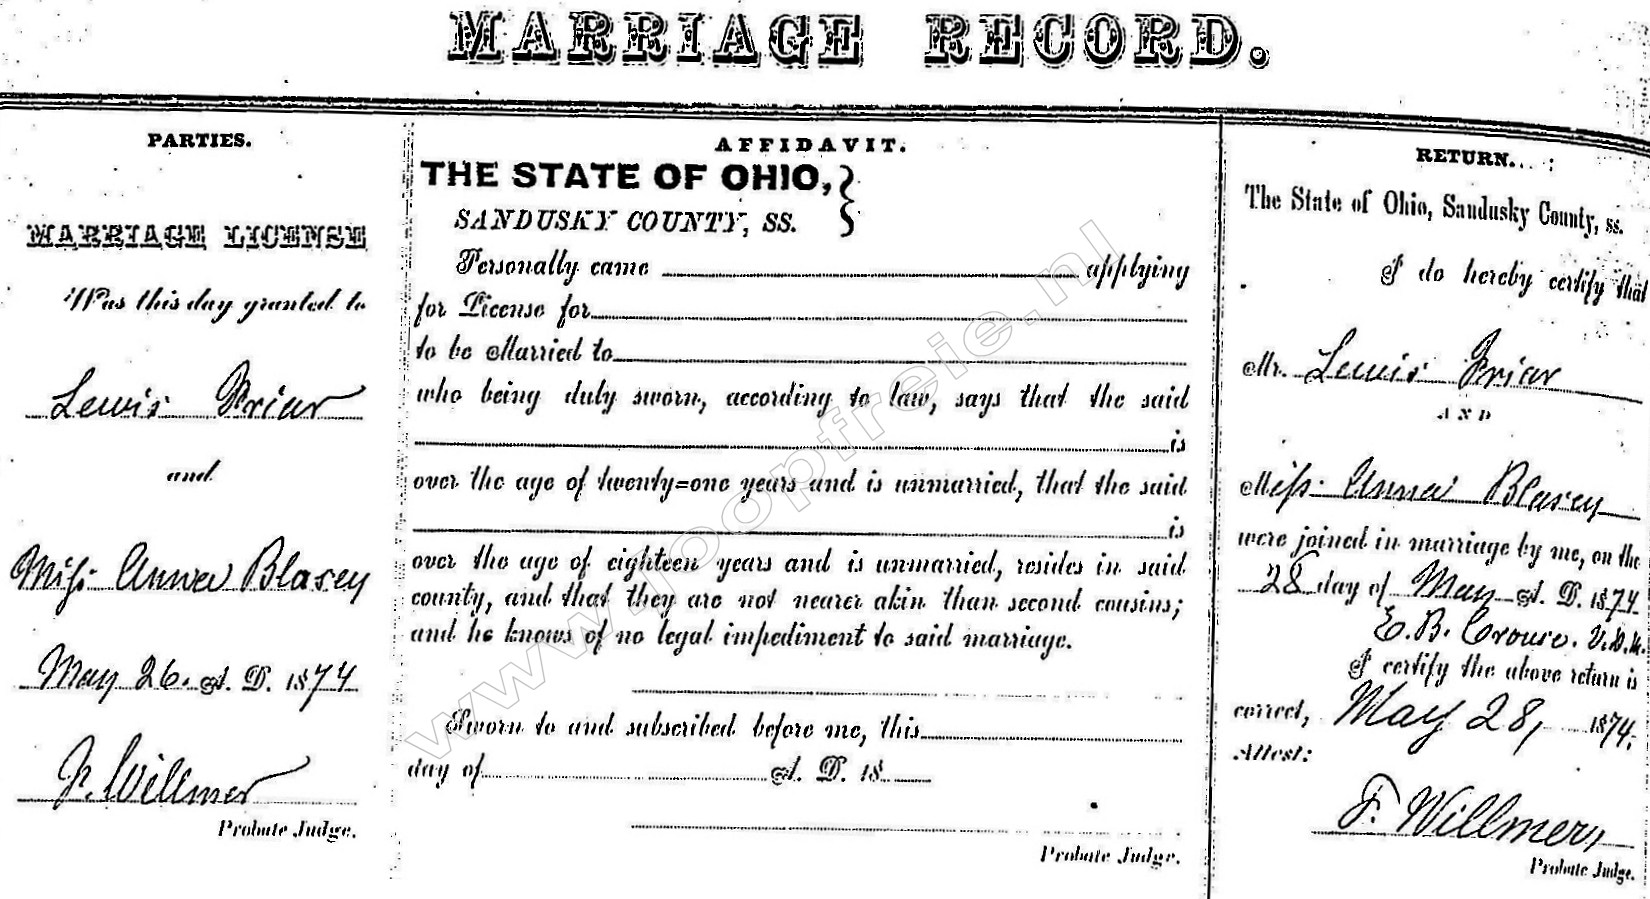 MARRIAGE RECORD.
PARTIES.
MARRIAGE LICENSE
Was this day granted to
Lewis Friar
and
Miss Anna Blasey
May 26. A. D. 1874
F. Willmer
Probate Judge.
AFFIDAVIT.
THE STATE OF OHIO,
SANDUSKY COUNTY, SS.
Personally came applying
for License for
to be Married to
who being duly sworn, according to law, says that the said
is
over the age of twenty=one years and is unmarried, that the said
is
over the age of eighteen years and is unmarried, resides in said
county, and that they are not nearer akin than second cousins;
and he knows of no legal impediment to said marriage.
Sworn to and subscribed before me, this
day of A. D. 18
Probate Judge.
RETURN.
The State of Ohio, Sandusky County, ss.
I do hereby certify that
Mr. Lewis Friar
AND
Miss Anna Blasey
were joined in marriage by me, on the
28 day of May A. D. 1874
E. B. Crouse. V.D.M.
I certify the above return is
correct, May 28, 1874.
Attest:
F. Willmer,
Probate Judge.
www.loopfreie.nl